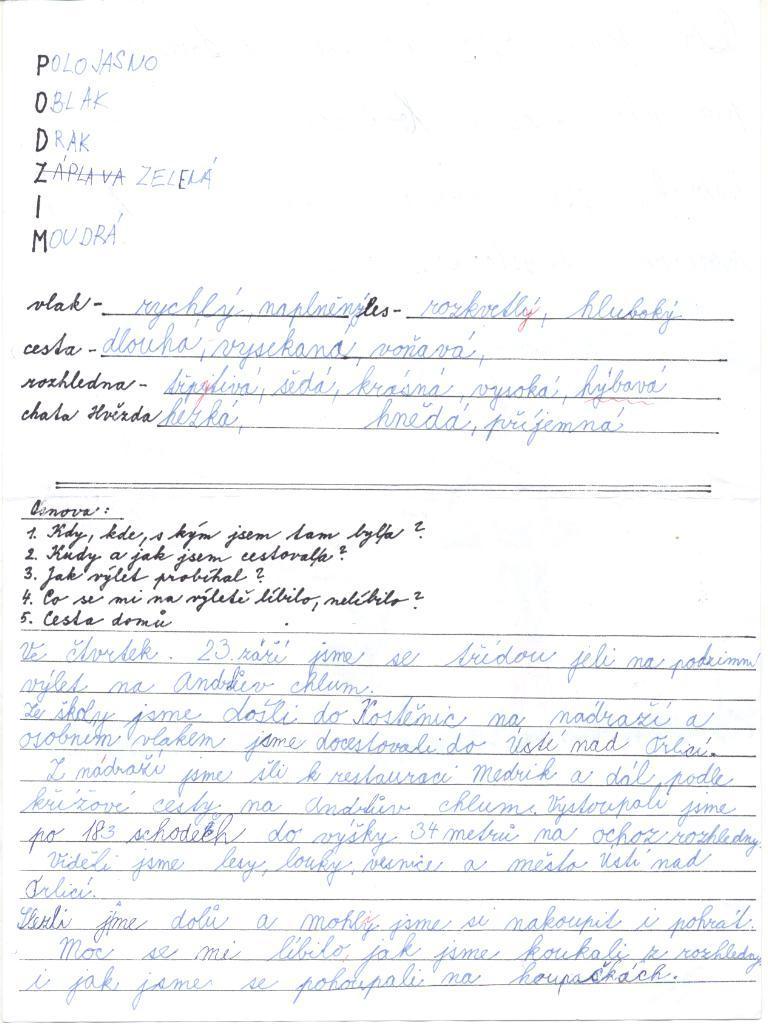 POLOJASNO
OBLAK
DRAK
ZÁPLAVA ZELENÁ
I
MOUDRÁ
vlak - rychlý, naplněný les - rozkvetlý, hluboký
cesta - dlouhá, vysekaná, voňavá,
rozhledna - třpytivá, šedá, krásná, vysoká, hýbavá
chata Hvězda hezká, hnědá, příjemná
Osnova:
1. Kdy, kde, s kým jsem tam byl/a?
2. Kudy a jak jsem cestoval/a?
3. Jak výlet probíhal?
4. Co se mi na výletě líbilo, nelíbilo?
5. Cesta domů
Ve čtvrtek. 23. září jsme se třídou jeli na podzimní
výlet na Andrlův chlum.
Ze školy jsme došli do Kostěnic na nádraží a
osobním vlakem jsme docestovali do Ústí nad Orlicí.
Z nádraží jsme šli k restauraci Medrik a dál podle
křížové cesty na Andrlův chlum. Vystoupali jsme
po 183 schodech do výšky 34 metrů na ochoz rozhledny.
Viděli jsme lesy, louky, vesnice a město Ústí nad
Orlicí.
Slezli jsme dolů a mohli jsme si nakoupit i pohrát.
Moc se mi líbilo, jak jsme koukali z rozhledny
i jak jsme se pohoupali na houpačkách.